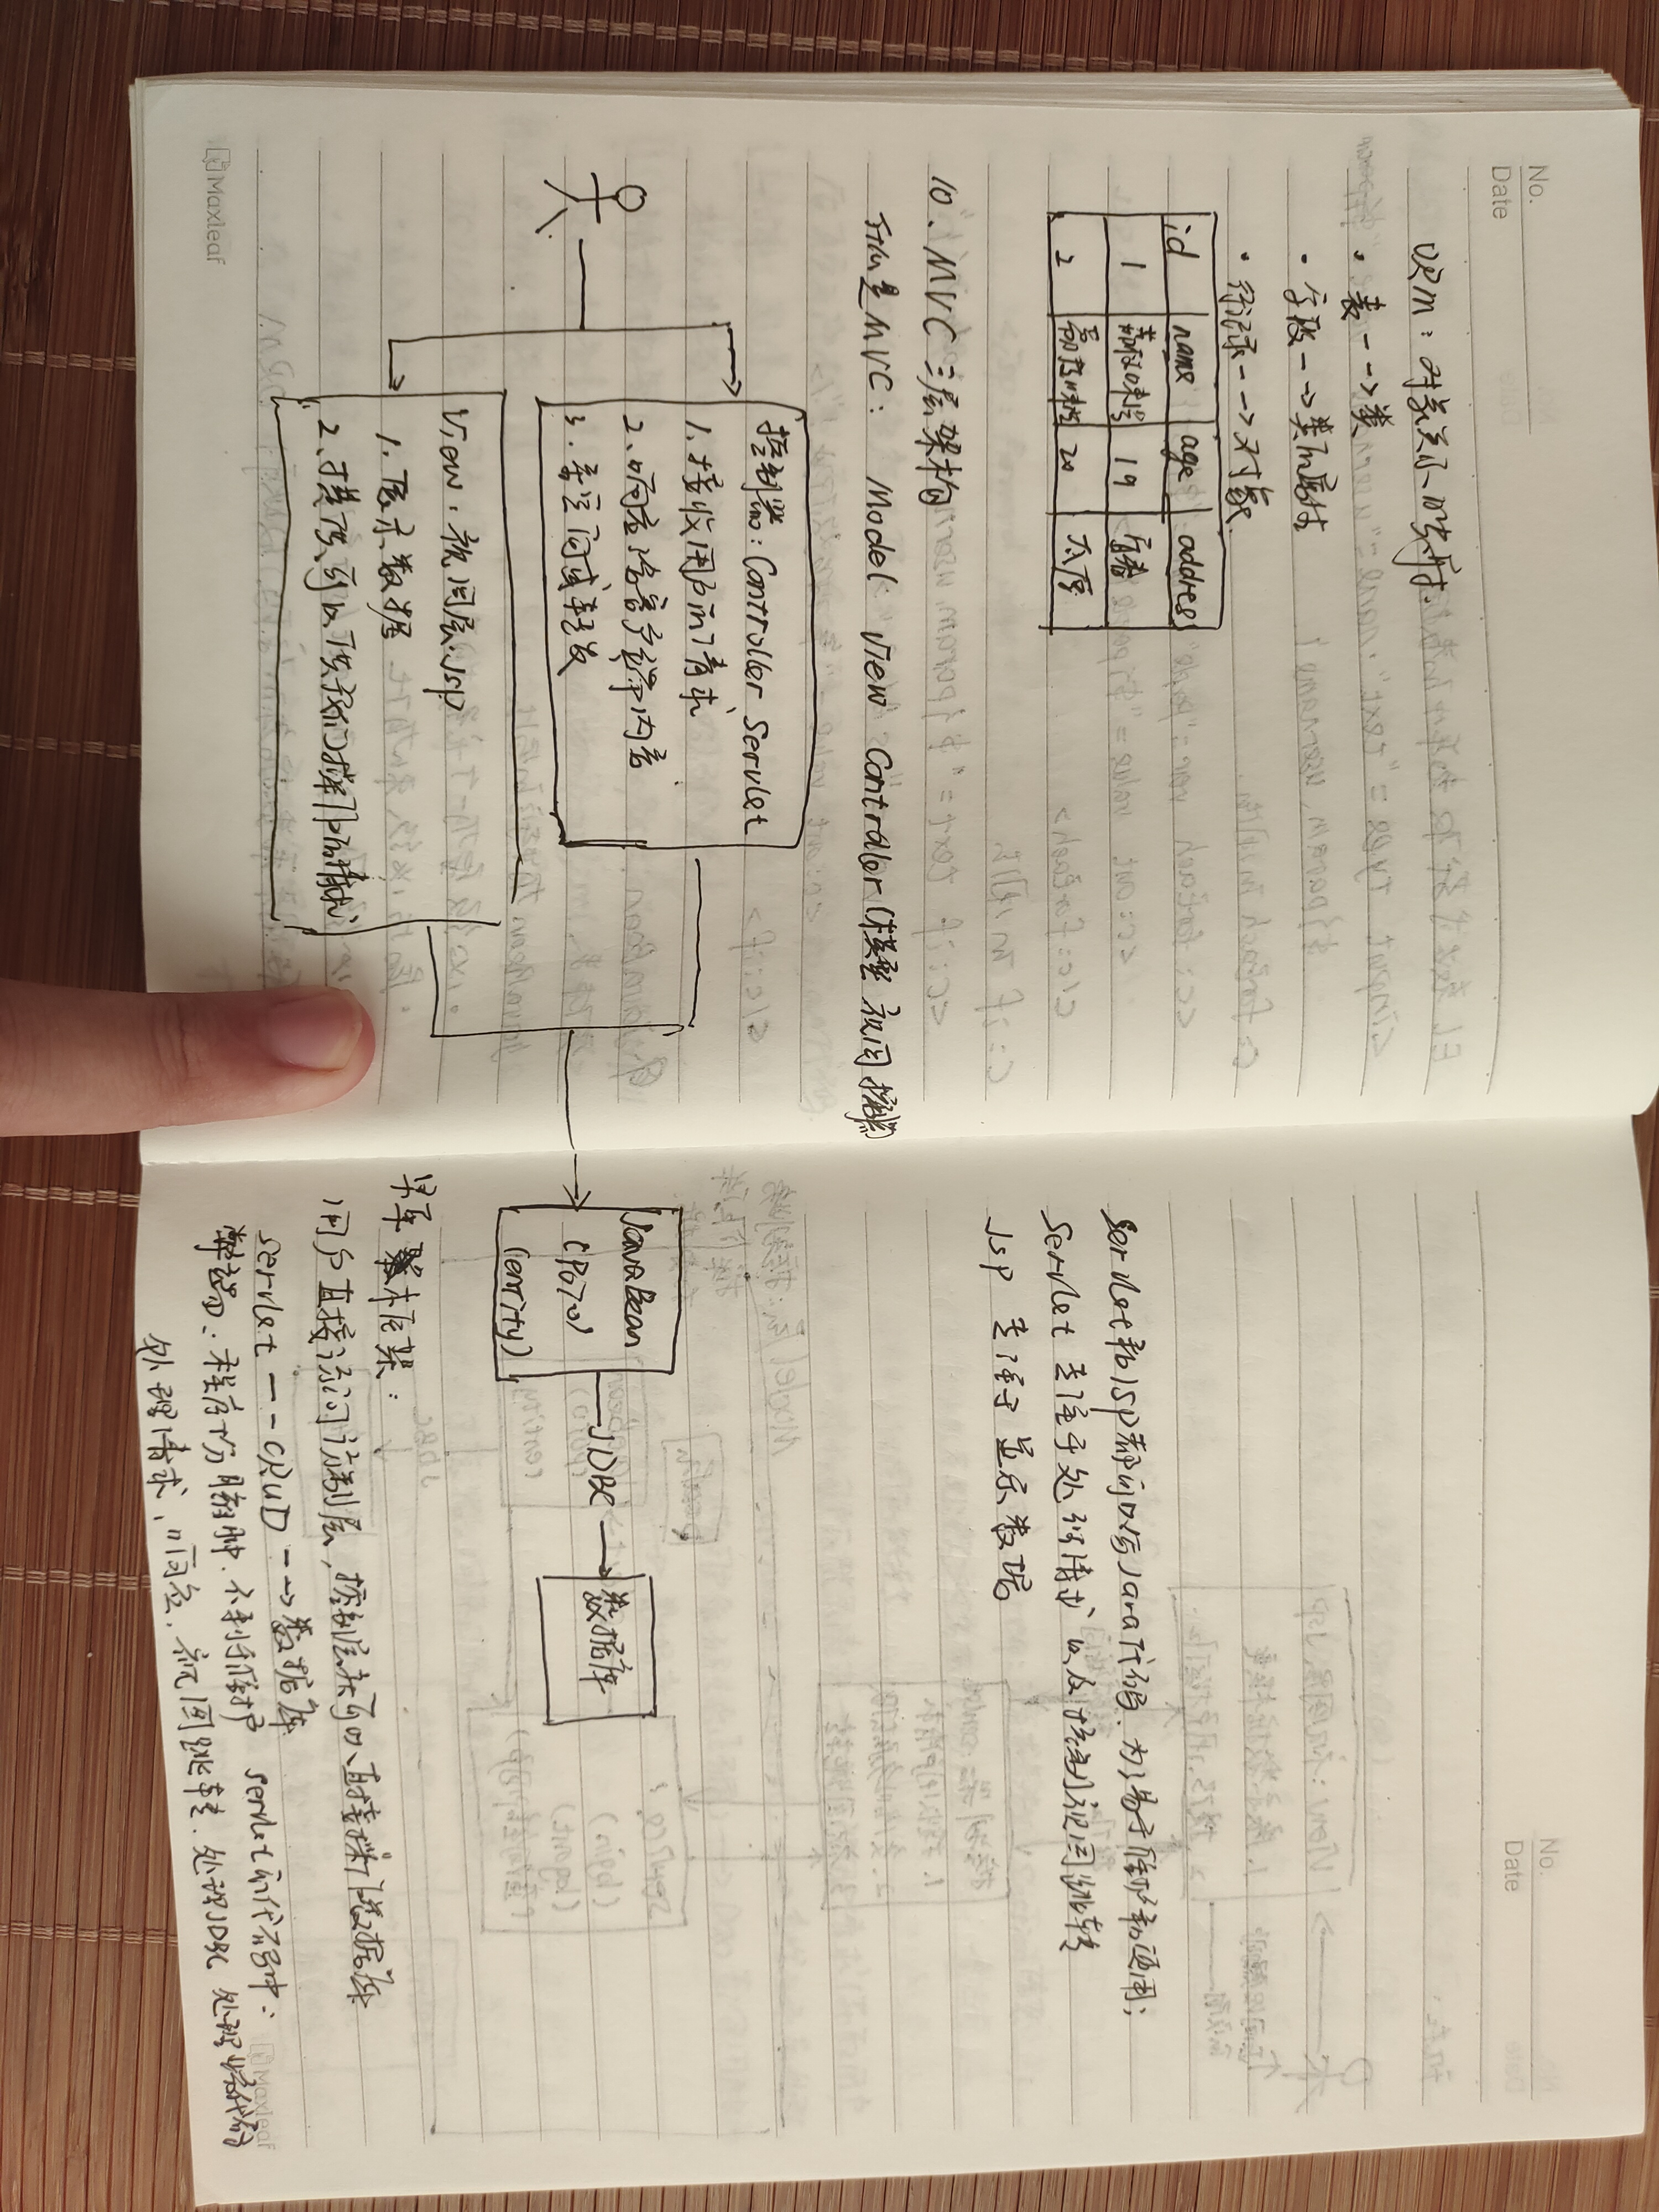 No.
Date
ORM：对象关系映射
· 表--→类
· 字段--→类的属性
· 行记录--→对象
id name age addres
1 19
2 20 太原
10、MVC三层架构
什么是MVC： Model View Controller（模型 视图 控制器）
控制器：Controller Servlet
1. 接收用户的请求
2. 响应给客户端内容
3. 重定向或转发
View：视图层 JSP
1. 展示数据
2. 提供可以供我们操作的请求
Maxleaf
No.
Date
Servlet和JSP都可以写Java代码，为了易于维护和使用；
Servlet 专注于处理请求，以及控制视图跳转
JSP 专注于显示数据
JavaBean
(POJO)
(entity)
JDBC
数据库
早年 架：
用户直接访问控制层，控制层就可以直接操作数据库
servlet--CRUD--→数据库
弊端：程序十分臃肿，不利于维护 servlet的代码中：
处理请求、响应、视图跳转、处理JDBC 处理业务代码
Maxleaf